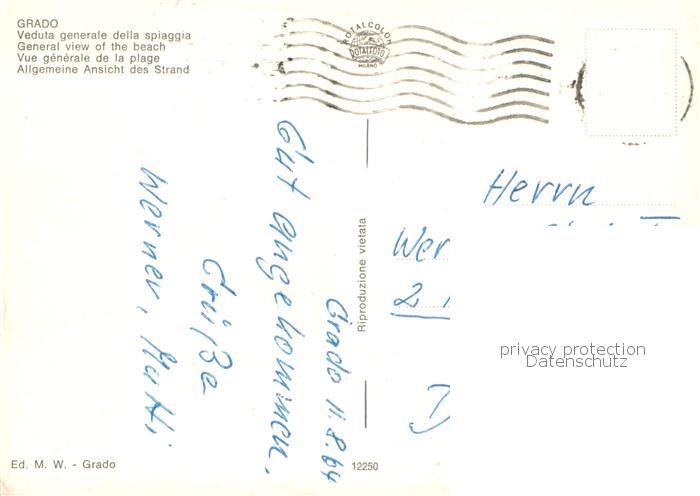 GRADO
Veduta generale della spiaggia
General view of the beach
Vue générale de la plage
Allgemeine Ansicht des Strand
ROTALCOLOR
ROTALFOTO
MILANO
Grado 11.8.64
Gut angekommen.
Grüße
Werner, Mutti
Riproduzione vietata
Herrn
Wer
2
privacy protection
Datenschutz
Ed. M. W. - Grado
12250